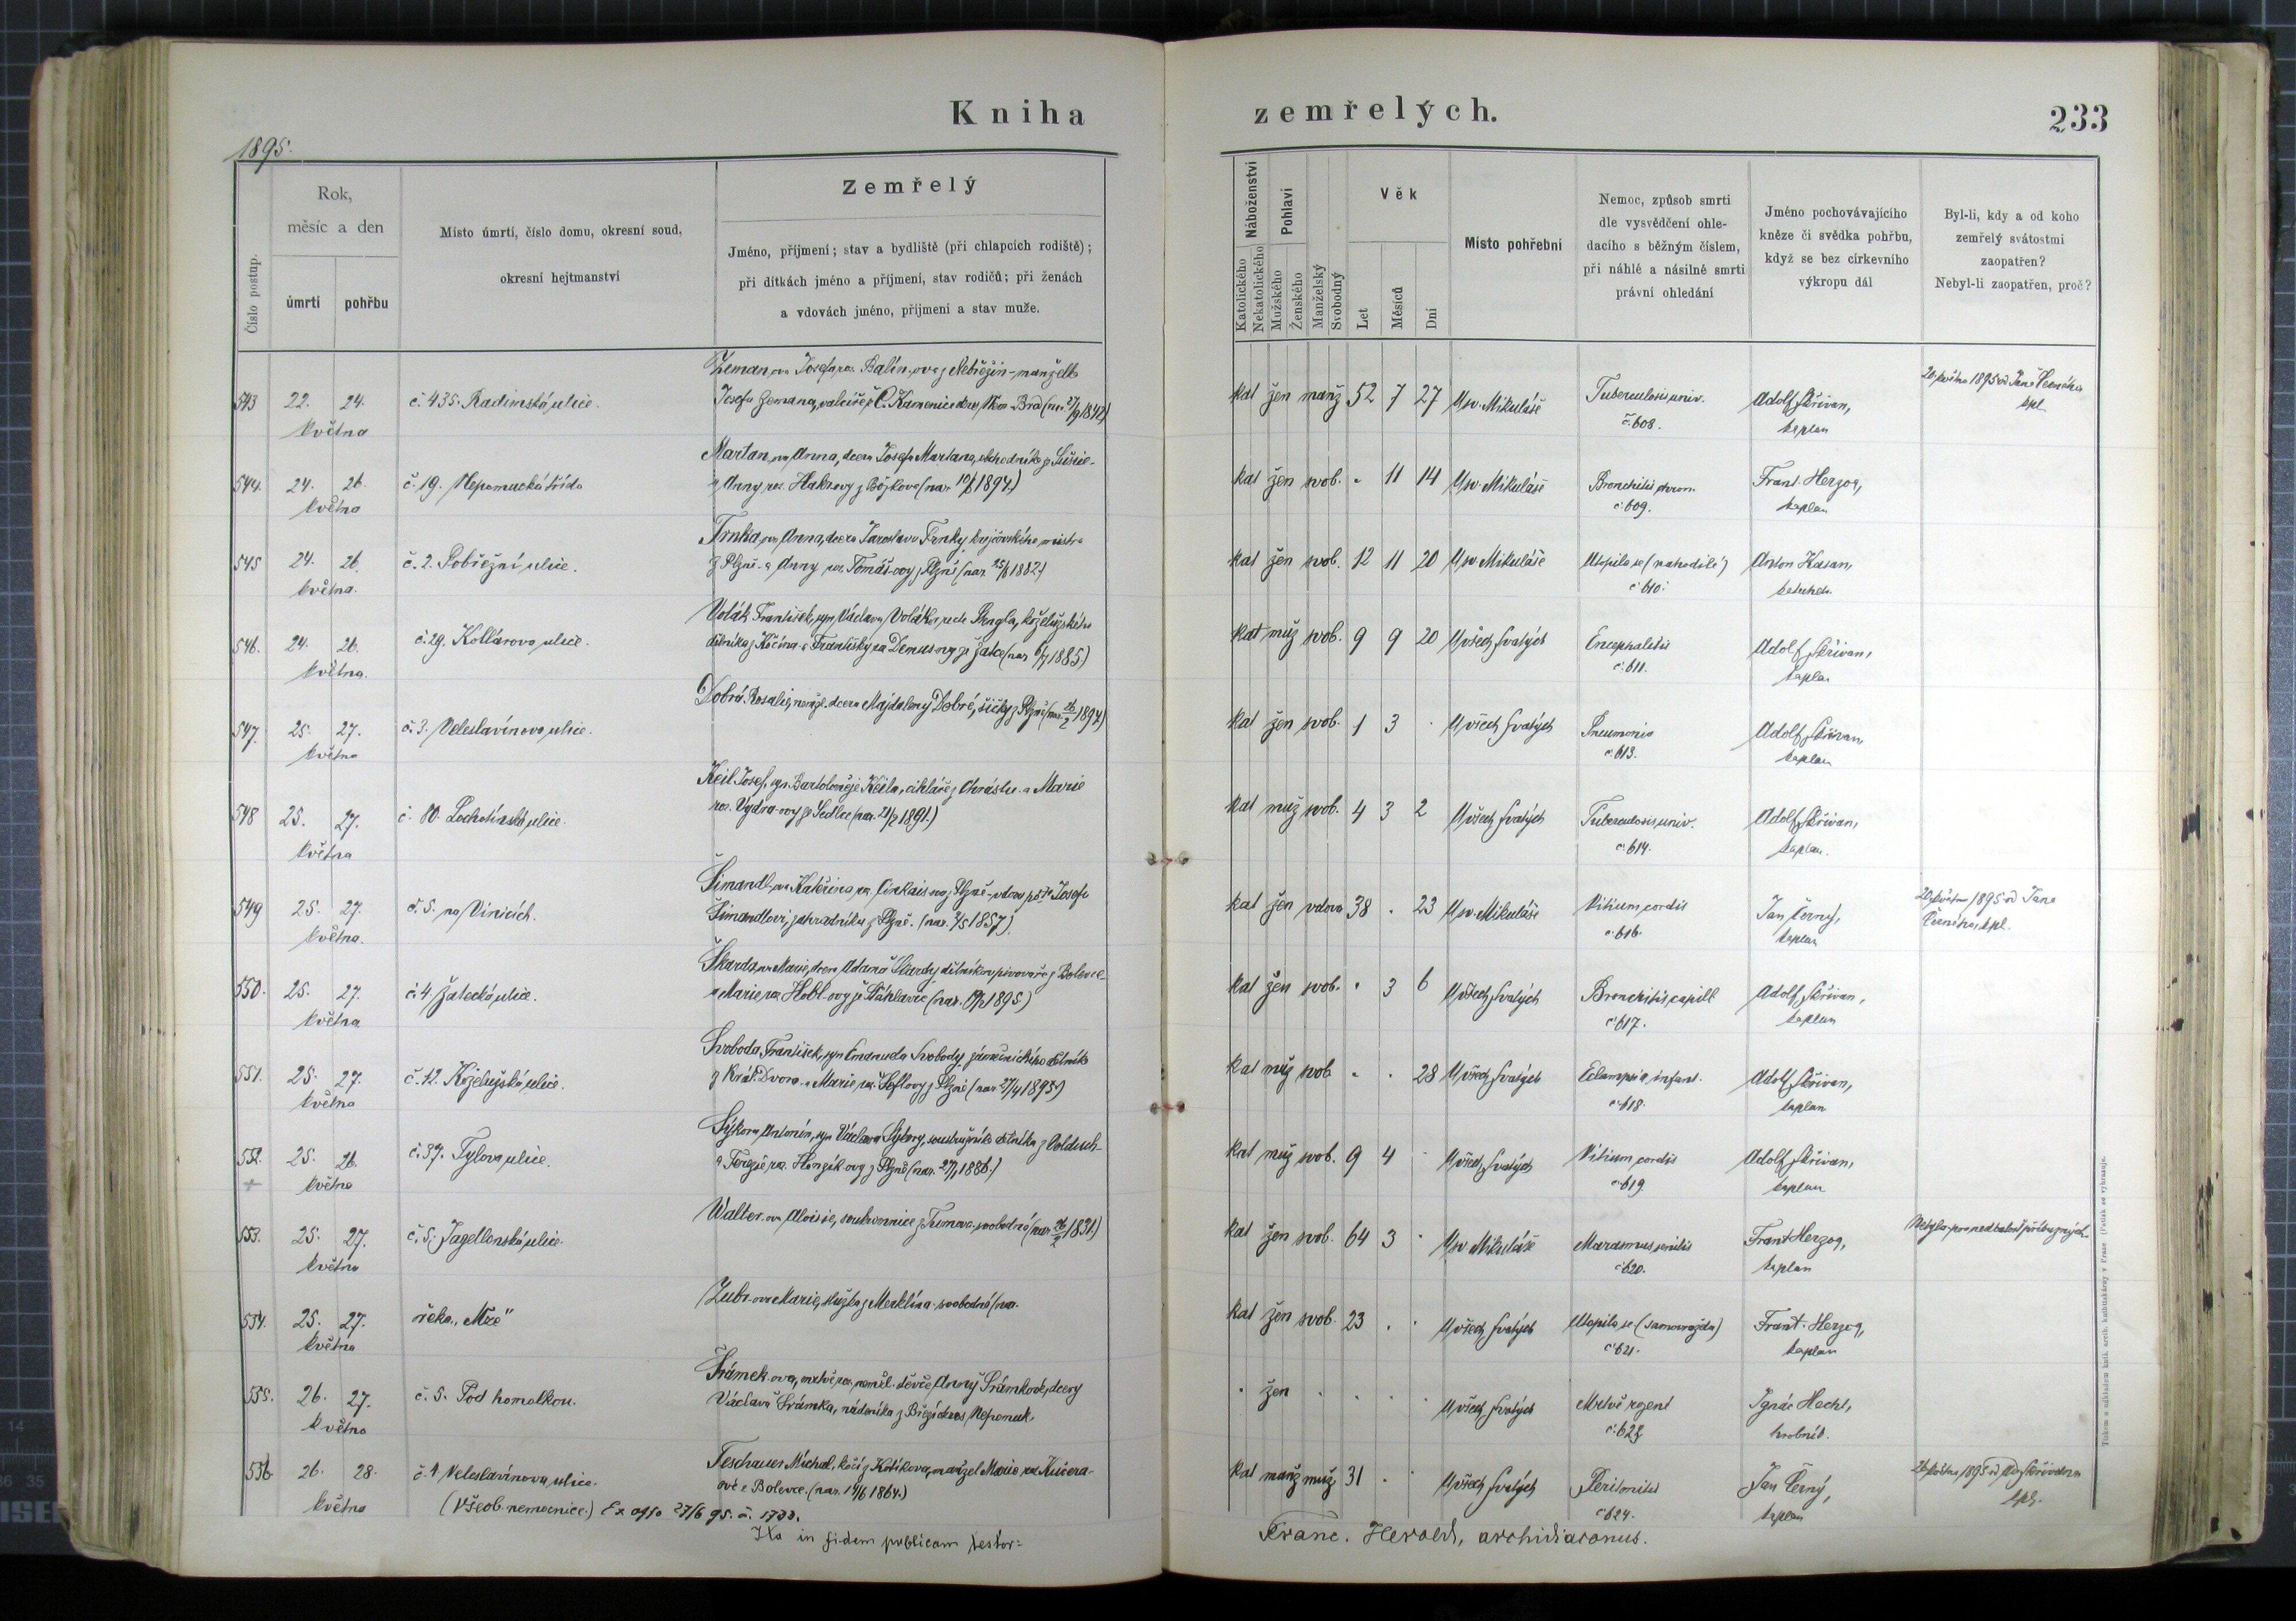 Kniha
zemřelých.
233
1895.
Číslo postup.
Rok,
měsíc a den
úmrtí
pohřbu
Místo úmrtí, číslo domu, okresní soud,
okresní hejtmanství
Zemřelý
Jméno, příjmení; stav a bydliště (při chlapcích rodiště);
při dítkách jméno a příjmení, stav rodičů; při ženách
a vdovách jméno, příjmení a stav muže.
Náboženství
Katolického
Nekatolického
Pohlaví
Mužského
Ženského
Manželský
Svobodný
Věk
Let
Měsíců
Dní
Místo pohřební
Nemoc, způsob smrti
dle vysvědčení ohle-
dacího s běžným číslem,
při náhlé a násilné smrti
právní ohledání
Jméno pochovávajícího
kněze či svědka pohřbu,
když se bez církevního
výkropu dál
Byl-li, kdy a od koho
zemřelý svátostmi
zaopatřen?
Nebyl-li zaopatřen, proč?
543 22. 24. května
č. 435. Radimská ulice.
Zeman ova Josefa, roz. Balín ova z Nebřežin - manželka
Josefa Zemana,
kat žen manž 52 7 27 U sv. Mikuláše
Tuberculosis univ. č. 608.
Adolf Skřivan, kaplan
20. května 1895 od Jana Černého kpl.
544. 24. 26. května
č. 19. Nepomucká třída
Martan ova Anna, dcera Josefa Martana, obchodníka z Sušice -
z Anny roz. z Božkova (nar. 1894)
kat žen svob. . 11 14 U sv. Mikuláše
Bronchitis chron. č. 609.
Frant. Herzog, kaplan
545 24. 26. května.
č. 2. Pobřežní ulice.
Trnka ova Anna, dcera Jaroslava Trnky, krejčovského mistra
z Plzně - a Anny roz. Tomáš-ovy z Plzně (nar. 1882)
kat žen svob. 12 11 20 U sv. Mikuláše
Utopila se (nahodile) č. 610.
Anton Hasan,
546. 24. 26. května.
č. 29. Kollárova ulice.
Volák František, syn Václava Voláka, koželužského
dělníka z a Františky roz. ze Žatce (nar. 1885)
kat muž svob. 9 9 20 U všech Svatých
Encephalitis č. 611.
Adolf Skřivan, kaplan
547. 25. 27. května
č. 3. Veleslavínova ulice.
Dobrá Rosalie, nemanž. dcera Majdaleny Dobré, šičky z Plzně (nar. 26/2 1894)
kat žen svob. 1 3 . U všech Svatých
Pneumonia č. 613.
Adolf Skřivan, kaplan
548 25. 27. května
č. 80. Lochotínská ulice.
Keil Josef, syn Bartoloměje Keila, cihláře z Chrástu - a Marie
roz. Vydra-ovy ze Sedlce (nar. 1891.)
kat muž svob. 4 3 2 U všech Svatých
Tuberculosis univ. č. 614.
Adolf Skřivan, kaplan.
549 25. 27. května.
č. 5. na Vinicích.
Šimandl ova Kateřina, roz. z Plzně - vdova po Josefu
Šimandlovi, zahradníku z Plzně. (nar. 2/5 1857)
kat žen vdova 38 . 23 U sv. Mikuláše
Vitium cordis č. 616.
Jan Černý, kaplan
20. května 1895 od Jana
Černého, kpl.
550. 25. 27. května
č. 4 Žatecká ulice.
Škarda ova Marie, dcera Adama Škardy, dělníka v pivovaře z Bolevce -
a Marie roz. Hobl-ovy ze Štáhlavic (nar. 1895)
kat žen svob. . 3 6 U všech Svatých
Bronchitis capill. č. 617.
Adolf Skřivan, kaplan
551. 25. 27. května
č. 12. Koželužská ulice.
Svoboda František, syn Emanuela Svobody, zámečnického dělníka
z Král. Dvora - a Marie, roz. z Plzně (nar. 27/4 1895)
kat muž svob. . . 28 U všech Svatých
Eclampsia infant. č. 618.
Adolf Skřivan, kaplan
552. 25. 26. května
č. 37. Tylova ulice.
Sýkora Antonín, syn Václava Sýkory, soustružníka dělníka z
a Terezie roz. z Plzně (nar. 1886.)
kat muž svob. 9 4 . U všech Svatých
Vitium cordis č. 619.
Adolf Skřivan, kaplan
553. 25. 27. května
č. 5. Jagellonská ulice.
Walter ova Aloisie, soukromnice z Turnova, svobodná (nar. 26/2 1831)
kat žen svob. 64 3 . U sv. Mikuláše
Marasmus senilis č. 620.
Frant Herzog, kaplan
Nebyla pro nedbalost příbuzných.
554. 25. 27. května
řeka "Mže"
Zubr ova Marie, služka z Merklína - svobodná (na.
kat žen svob. 23 . . U všech Svatých
Utopila se (samovražda) č. 621.
Frant. Herzog, kaplan
555. 26. 27. května
č. 5. Pod homolkou.
Šrámek ova, mrtvě roz. nemanžel. děvče Anny Šrámkové, dcery
Václava Šrámka, nádeníka z Nepomuk.
. žen . . . . U všech Svatých
Mrtvě rozené č. 623
Ignác Hecht, hrobník.
556. 26. 28. května
č. 1 Veleslavínova ulice.
(Všeob. nemocnice.) Ex offo 27/6 95. č. 1733.
Teschauer Michal, kočí z Košíkova, manžel Marie, roz. Kučera-
ové z Bolevce. (nar. 1864.)
kat manž muž 31 . . U všech Svatých
Peritonitis č. 624.
Jan Černý, kaplan
26. května 1895 od Ad. Skřivana kpl.
Ita in fidem publicam testor:
Franc. Herold, archidiaconus.